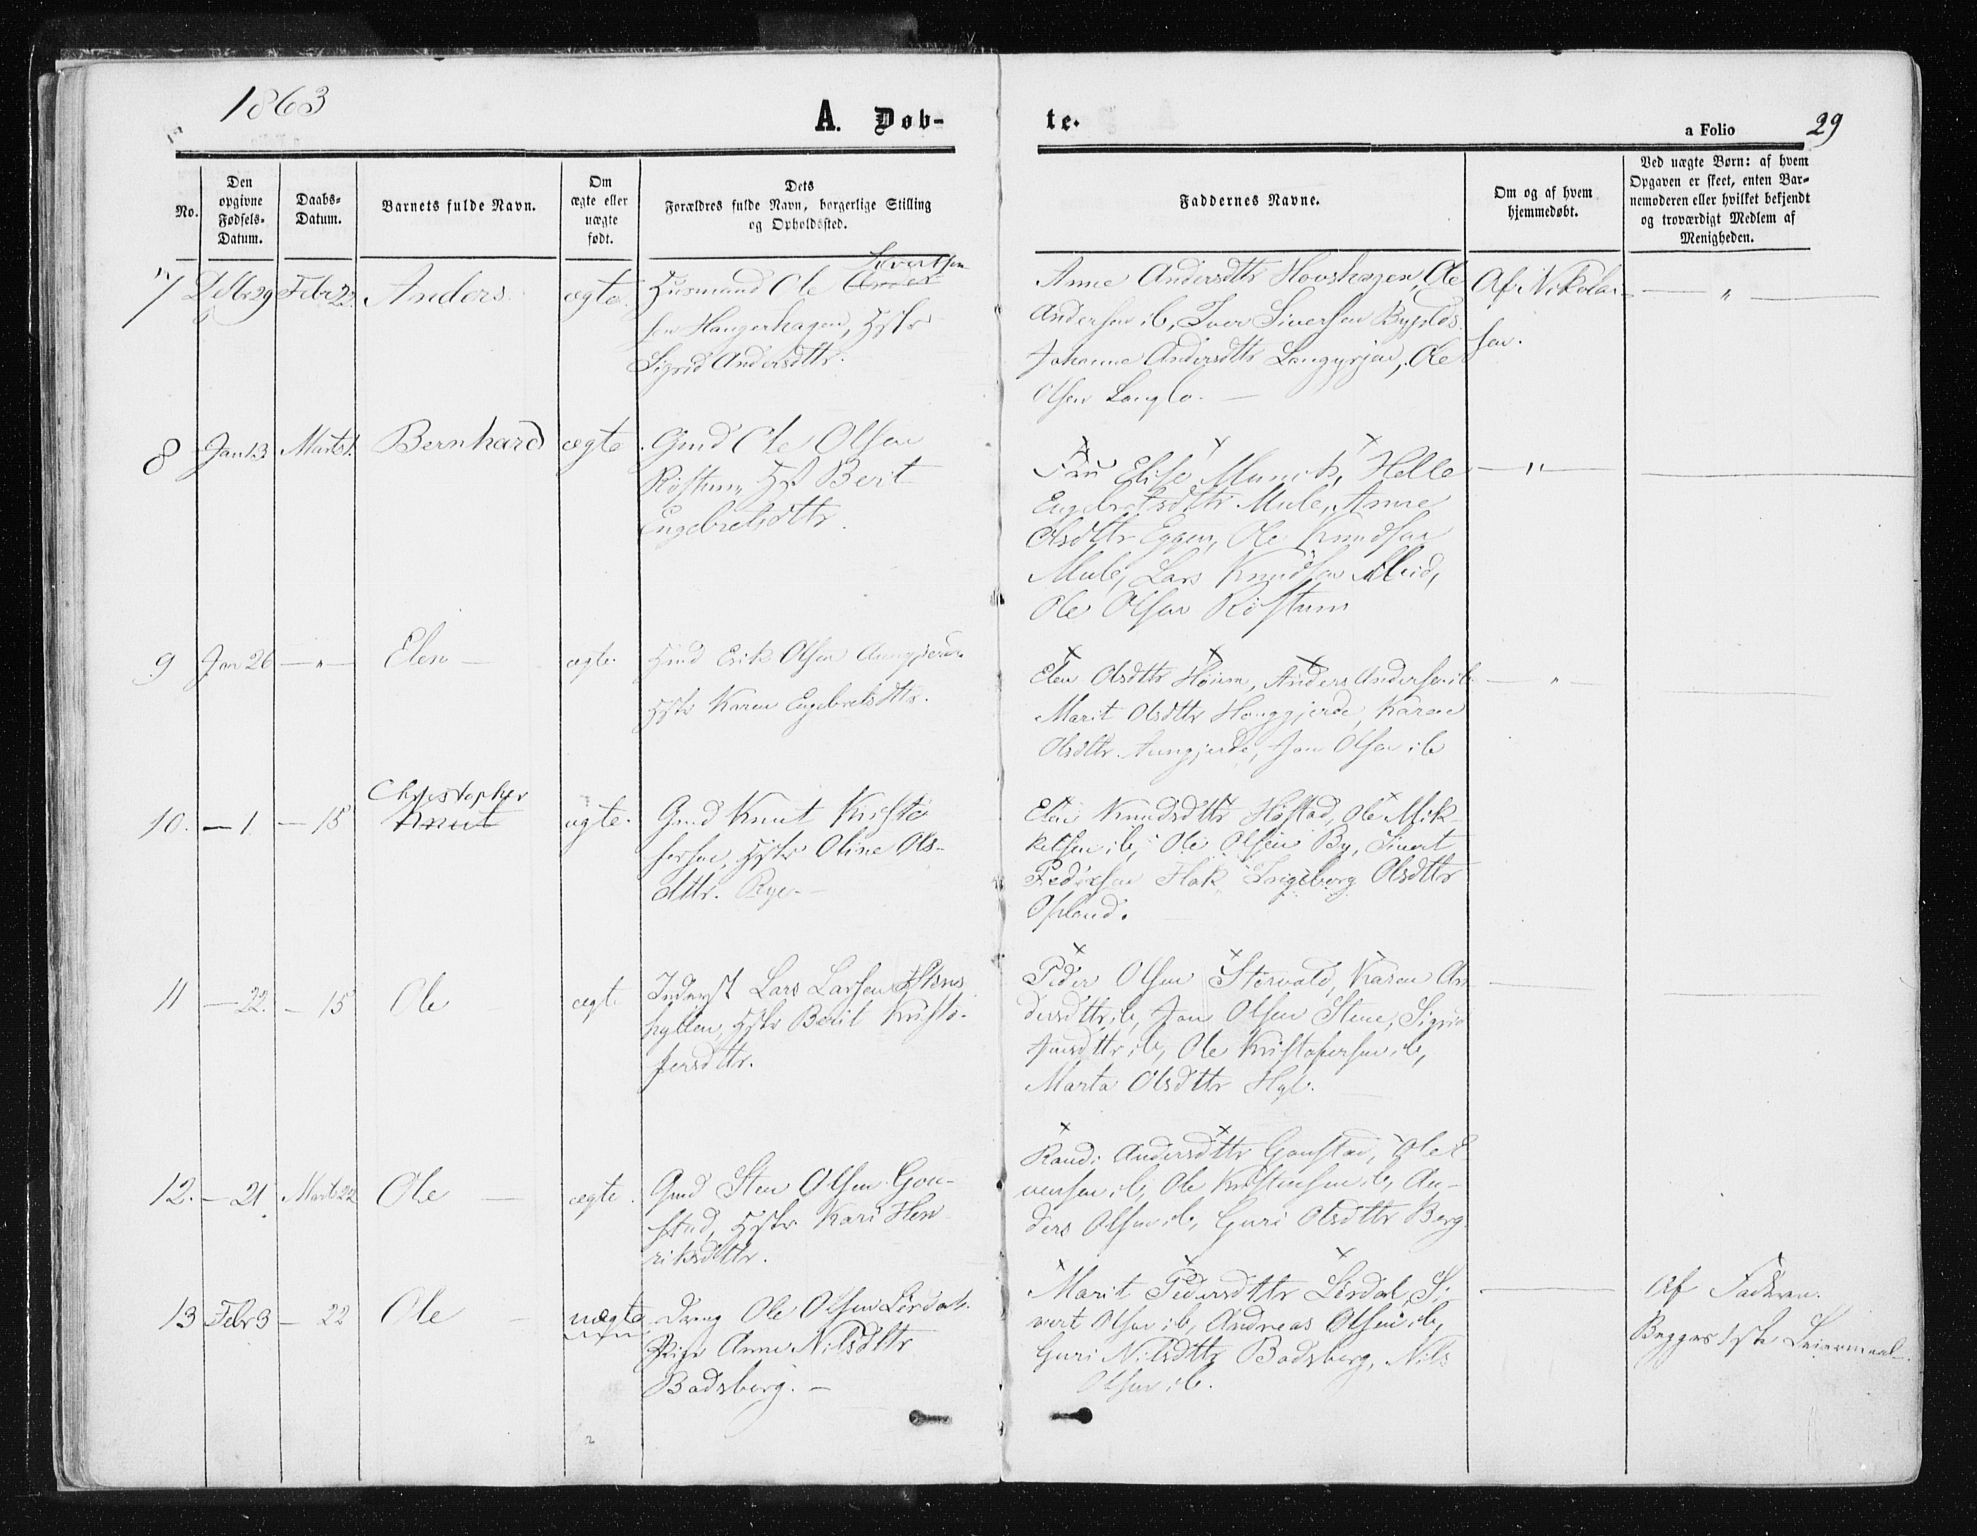 1863
A. Døb-
te.
a Folio 29
No.
Den opgivne Fødsels-Datum.
Daabs-Datum.
Barnets fulde Navn.
Om ægte eller uægte født.
Dets Forældres fulde Navn, borgerlige Stilling og Opholdssted.
Faddernes Navne.
Om og af hvem hjemmedøbt.
Ved uægte Børn: af hvem Opgaven er skeet, enten Barnemoderen eller hvilket bekjendt og troværdigt Medlem af Menigheden.
7 Febr 22 Anders ægte
Husmand Ole Sivertsen
Sigrid Andersdttr.
Anne Andersdttr Ole
Andersen ib, Iver Siversen
Johanne Andersdttr Ole
Olsen Langlo.
Af Nikolai-
sen.
8 Jan 13 Marts 1. Bernhard ægte
Gmd Ole Olsen
Røstum, Berit
Engebretsdttr.
Fru Elise Munch, Helle
Engebretsdttr Mule, Anne
Olsdttr Eggen, Ole Knudsen
Mule, Lars Knudsen
Ole Olsen Røstum
9 Jan 26 — " — Elen ægte
Erik Olsen
Karen Engebretsdttr.
Elen Olsdttr Anders Andersen ib
Marit Olsdttr Karen
Olsdttr Jon Olsen ib
10. — 1. — 15 Christopher
Knut
ægte.
Gmd Knut Kristo
fersen, Hstr Oline Ols-
dttr. Rye.
Elen Knudsdttr Høstad, Ole Mik-
kelsen ib, Ole Olsen By, Sivert
Flak, Ingeborg Olsdttr
Opland.
11 — 22. — 15 Ole ægte
Inderst Lars Larsen
Hstr Berit Kristo-
fersdttr.
Peder Olsen Karen An
dersdttr ib, Jon Olsen Stene, Sigrid
Jonsdttr ib, Ole Kristofersen ib,
Marta Olsdttr
12. — 21. Marts 22 Ole ægte.
Gmd Sten Olsen Gon-
stad, Hstr. Kari Hen
riksdttr.
Randi Andersdttr Gonstad, Ole
ib, Ole Kristensen ib, An-
ders Olsen ib, Guri Olsdttr Berg
13 Febr 3 — 22 Ole uægte
Ole Olsen Lerdal.
Pige Anne Nilsdttr
Badsberg. —
Marit Pedersdttr Lerdal, Si-
vert Olsen ib, Andreas Olsen ib,
Guri Nilsdttr Badsberg, Nils
Olsen ib.
Af Faderen.
Begges 1ste Leiermaal.